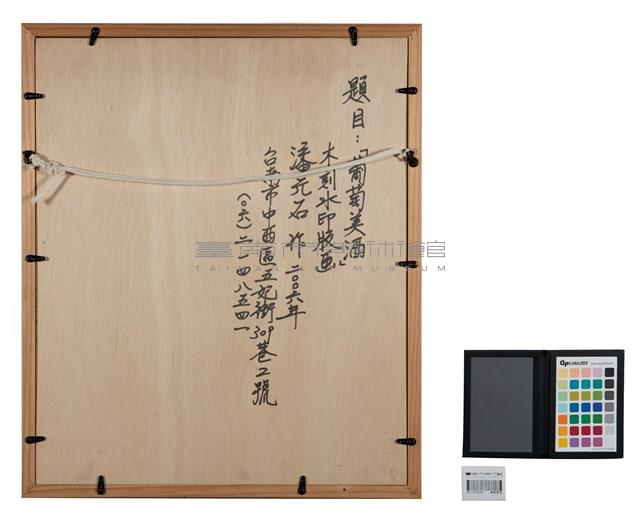 題目：「葡萄美酒」
木刻水印版畫
潘元石 作 二〇〇六年
台南市中西區五妃街309巷2號
(〇六)二一四八五四一
臺南市美術館
TAINAN ART MUSEUM
QPcard 203